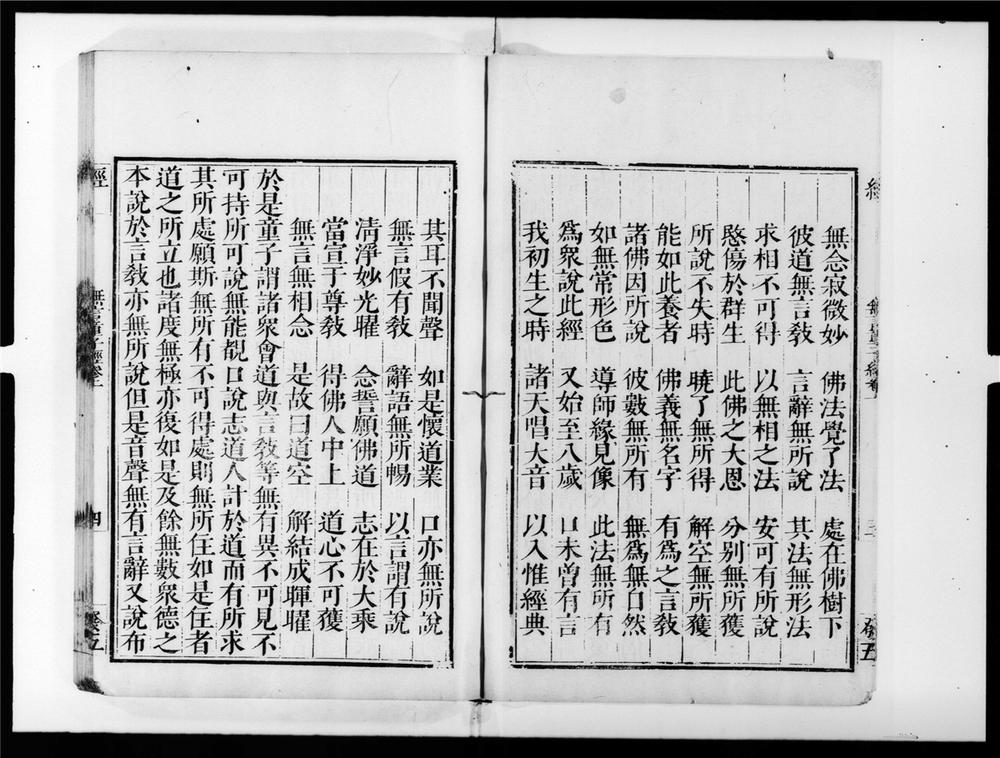 無念寂微妙　佛法覺了法　處在佛樹下
彼道無言敎　言辭無所說　其法無形法
求相不可得　以無相之法　安可有所說
愍傷於群生　此佛之大恩　分别無所獲
所說不失時　曉了無所得　解空無所獲
能如此養者　佛義無名字　有爲之言敎
諸佛因所說　彼數無所有　無爲無口然
如無常形色　導師緣見像　此法無所有
爲眾說此經　又始至八歲　口未曾有言
我初生之時　諸天唱大音　以入惟經典
其耳不聞聲　如是懷道業　口亦無所說
無言假有敎　辭語無所暢　以言謂有說
淸淨妙光曜　念誓願佛道　志在於大乘
當宣于尊敎　得佛人中上　道心不可獲
無言無相念　是故曰道空　解結成暉曜
於是童子謂諸衆會道與言敎等無有異不可見不
可持所可說無能覩口說志道人計於道而有所求
其所處願斯無所有不可得處則無所住如是住者
道之所立也諸度無極亦復如是及餘無數衆德之
本說於言敎亦無所說但是音聲無有言辭又說布
經
四